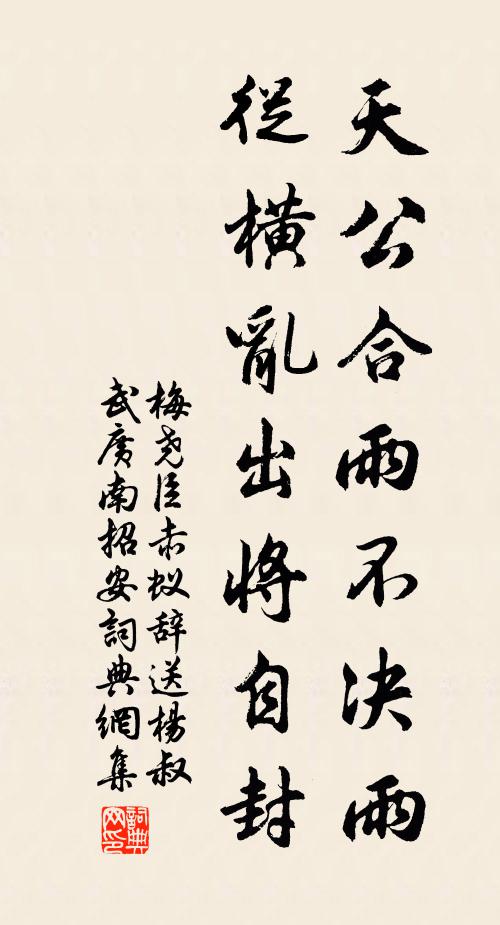 天公合雨不决雨
從橫亂出將自封
梅尧臣赤蚁辞送楊叔
武廣南招安詞典網集
詞典网印